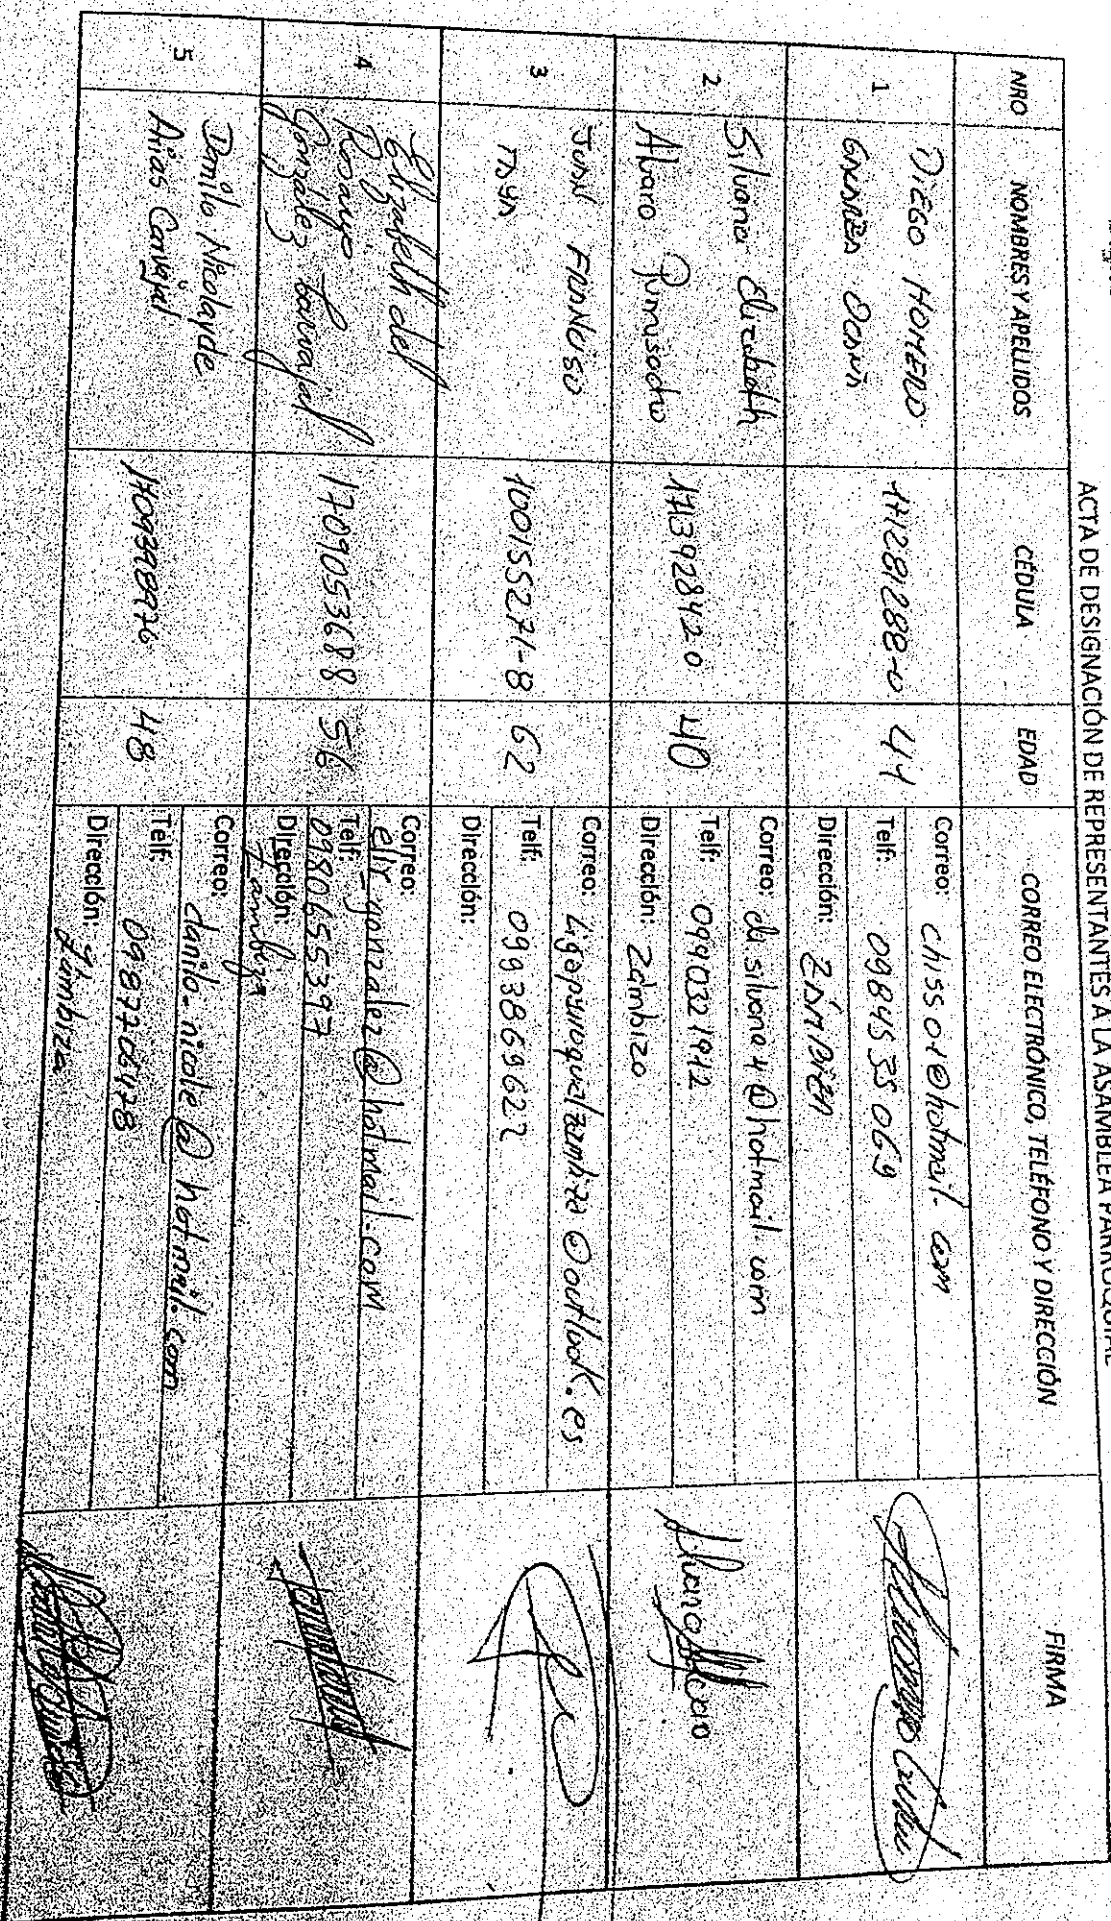 ACTA DE DESIGNACIÓN DE REPRESENTANTES A LA ASAMBLEA PARROQUIAL
NRO NOMBRES Y APELLIDOS CÉDULA EDAD CORREO ELECTRÓNICO, TELÉFONO Y DIRECCIÓN FIRMA
1
DIEGO HOMERO
44
Correo: chisso1@hotmail.com
Telf: 0984535069
Dirección: ZÁMBIZA
2
Silvana Elizabeth
Alvaro
1713928420
40
Correo: disilvana4@hotmail.com
Telf: 0990321912
Dirección: Zámbiza
3
JUAN FRANCISO
100155271-8
62
Correo: @outlook.es
Telf: 0993869622
Dirección:
4
Elizabeth del
Rosario
González Carvajal
1709053688
56
Correo:
eliz-gonzalez@hotmail.com
Telf:
0980655397
Dirección:
Zambiza
5
Danilo
Arias Carvajal
48
Correo: danilo-nicole@hotmail.com
Telf: 0987706478
Dirección: Zambiza